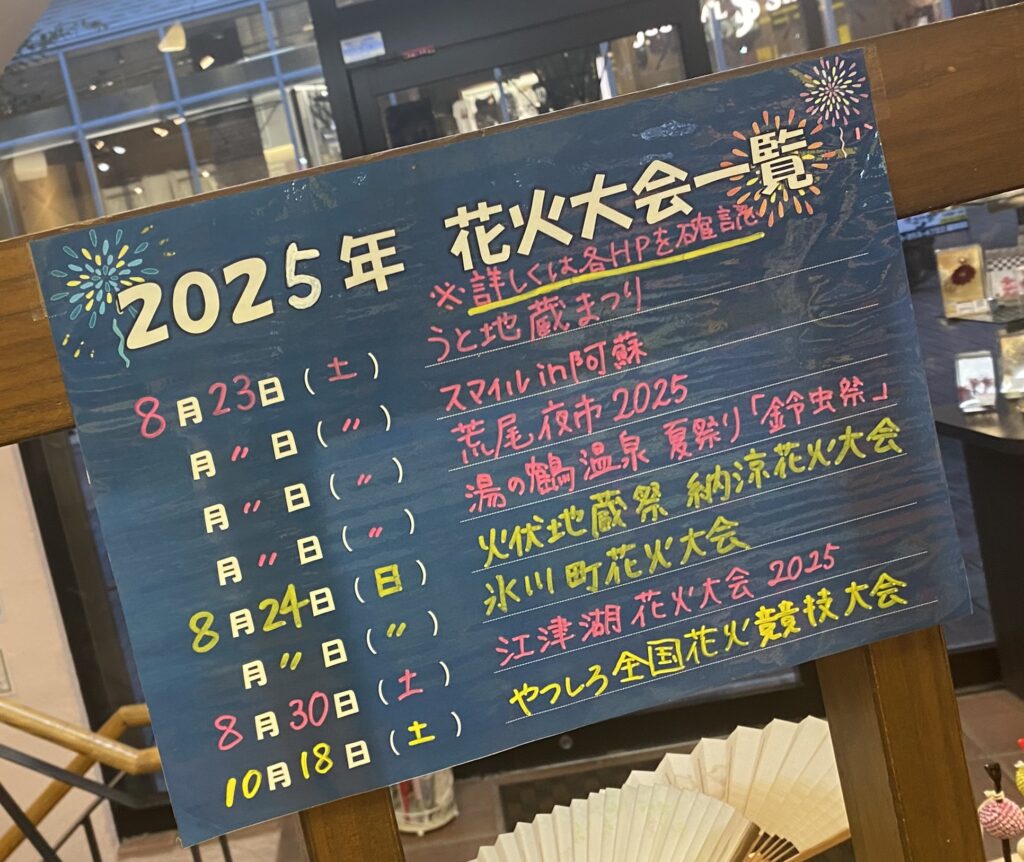 2025年 花火大会一覧
※詳しくは各HPを確認
8月23日(土) うと地蔵まつり
月〃日(〃) スマイルin阿蘇
月〃日(〃) 荒尾夜市2025
月〃日(〃) 湯の鶴温泉 夏祭り「鈴虫祭」
8月24日(日) 火伏地蔵祭 納涼花火大会
月〃日(〃) 氷川町花火大会
8月30日(土) 江津湖花火大会 2025
10月18日(土) やつしろ全国花火競技大会